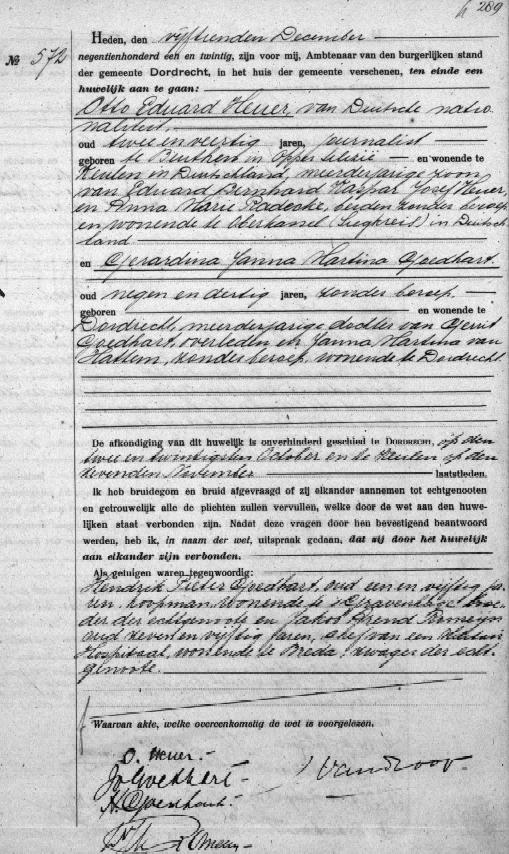 289
№ 572
Heden, den vijftienden December
negentienhonderd een en twintig, zijn voor mij, Ambtenaar van den burgerlijken stand
der gemeente Dordrecht, in het huis der gemeente verschenen, ten einde een
huwelijk aan te gaan:
Otto Eduard Heuer, van Duitsche natio-
naliteit,
oud twee en veertig jaren, journalist
geboren te Beuthen in Opper Silezië en wonende te
Keulen in Duitschland, meerderjarige zoon
van Eduard Bernhard Kaspar Josef Heuer,
en Anna Marie Radecke, beiden zonder beroep
en wonende te Oberhanel (Siegkreis) in Duitsch-
land
en Gerardina Janna Martina Goedhart
oud negen en dertig jaren, zonder beroep
geboren en wonende te
Dordrecht, meerderjarige dochter van Gerrit
Goedhart, overleden en Janna Martina van
Hattem, zonder beroep, wonende te Dordrecht
De afkondiging van dit huwelijk is onverhinderd geschied te Dordrecht, op den
twee en twintigsten October en te Keulen op den
zevenden November laatstleden.
Ik heb bruidegom en bruid afgevraagd of zij elkander aannemen tot echtgenooten
en getrouwelijk alle de plichten zullen vervullen, welke door de wet aan den huwe-
lijken staat verbonden zijn. Nadat deze vragen door hen bevestigend beantwoord
werden, heb ik, in naam der wet, uitspraak gedaan, dat zij door het huwelijk
aan elkander zijn verbonden.
Als getuigen waren tegenwoordig:
Hendrik Pieter Goedhart, oud een en vijftig ja-
ren, koopman, wonende te 's Gravenhage broe-
der der echtgenoote en Jakob Arend Romeijn
oud zeven en vijftig jaren, chef van een
Hospitaal, wonende te Breda, zwager der echt-
genoote.
Waarvan akte, welke overeenkomstig de wet is voorgelezen.
O. Heuer.